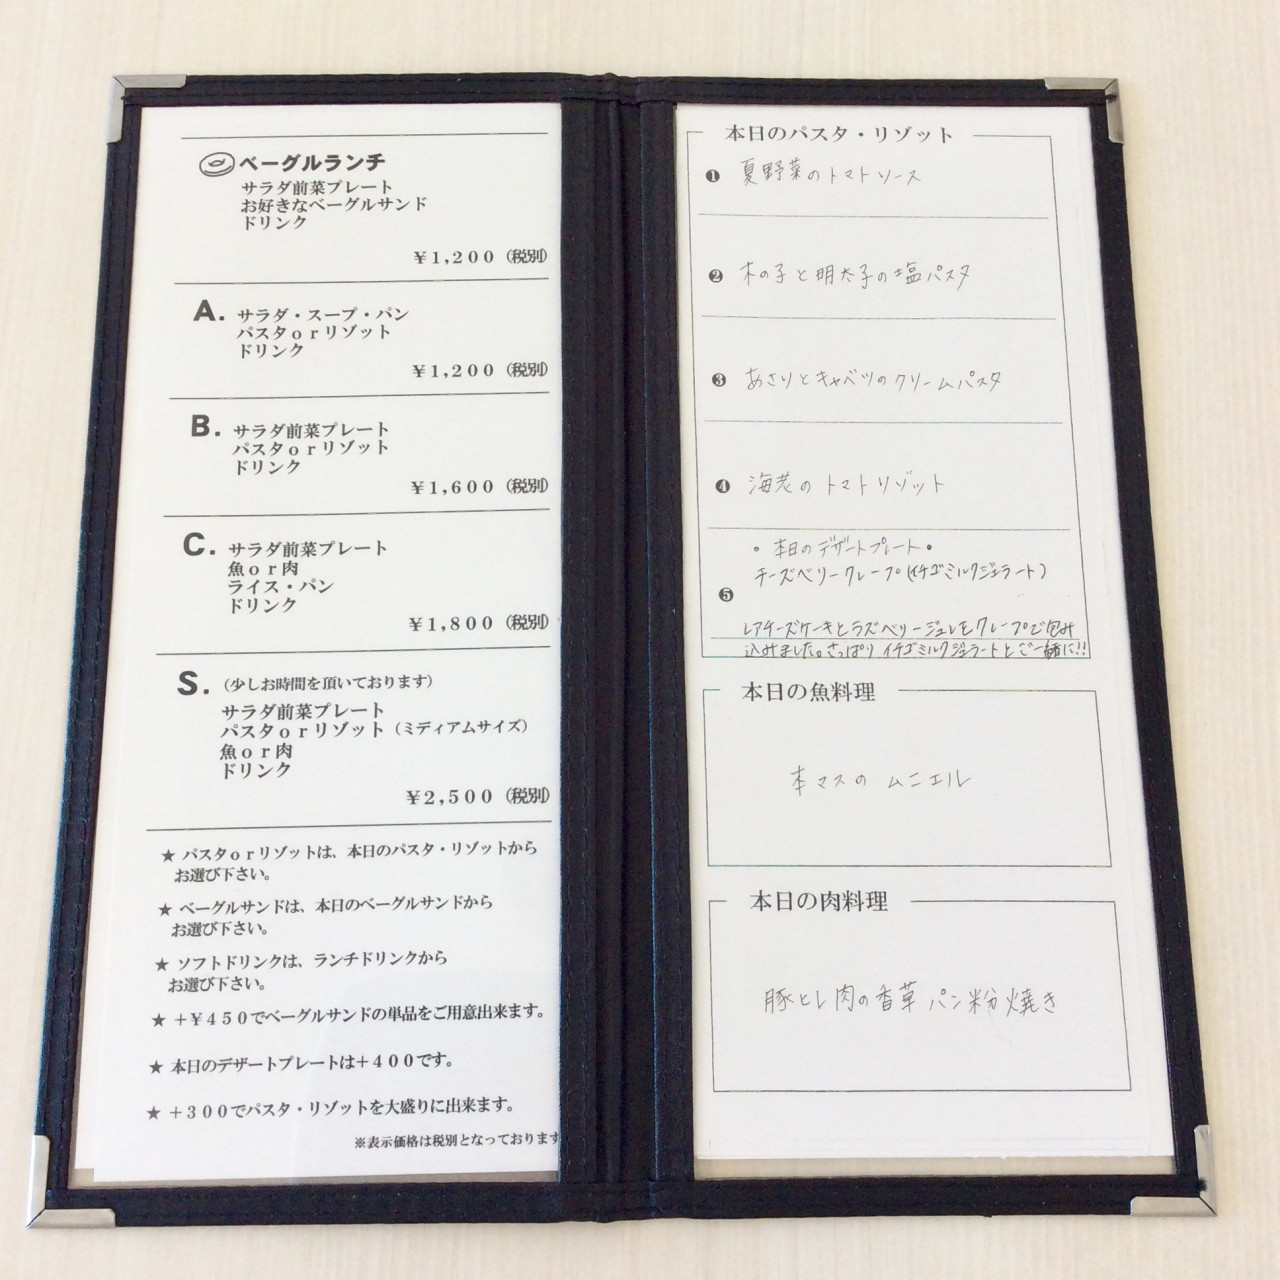 ベーグルランチ
サラダ前菜プレート
お好きなベーグルサンド
ドリンク
¥1,200（税別）
A. サラダ・スープ・パン
パスタorリゾット
ドリンク
¥1,200（税別）
B. サラダ前菜プレート
パスタorリゾット
ドリンク
¥1,600（税別）
C. サラダ前菜プレート
魚or肉
ライス・パン
ドリンク
¥1,800（税別）
S.（少しお時間を頂いております）
サラダ前菜プレート
パスタorリゾット（ミディアムサイズ）
魚or肉
ドリンク
¥2,500（税別）
★ パスタorリゾットは、本日のパスタ・リゾットから
お選び下さい。
★ ベーグルサンドは、本日のベーグルサンドから
お選び下さい。
★ ソフトドリンクは、ランチドリンクから
お選び下さい。
★ +¥450でベーグルサンドの単品をご用意出来ます。
★ 本日のデザートプレートは+400です。
★ +300でパスタ・リゾットを大盛りに出来ます。
※表示価格は税別となっております
本日のパスタ・リゾット
❶ 夏野菜のトマトソース
❷ 木の子と明太子の塩パスタ
❸ あさりとキャベツのクリームパスタ
❹ 海老のトマトリゾット
• 本日のデザートプレート •
チーズベリークレープ(イチゴミルクジェラート)
❺
レアチーズケーキとラズベリージュレをクレープで包み
込みました。さっぱりイチゴミルクジェラートとご一緒に!!
本日の魚料理
本マスのムニエル
本日の肉料理
豚ヒレ肉の香草パン粉焼き